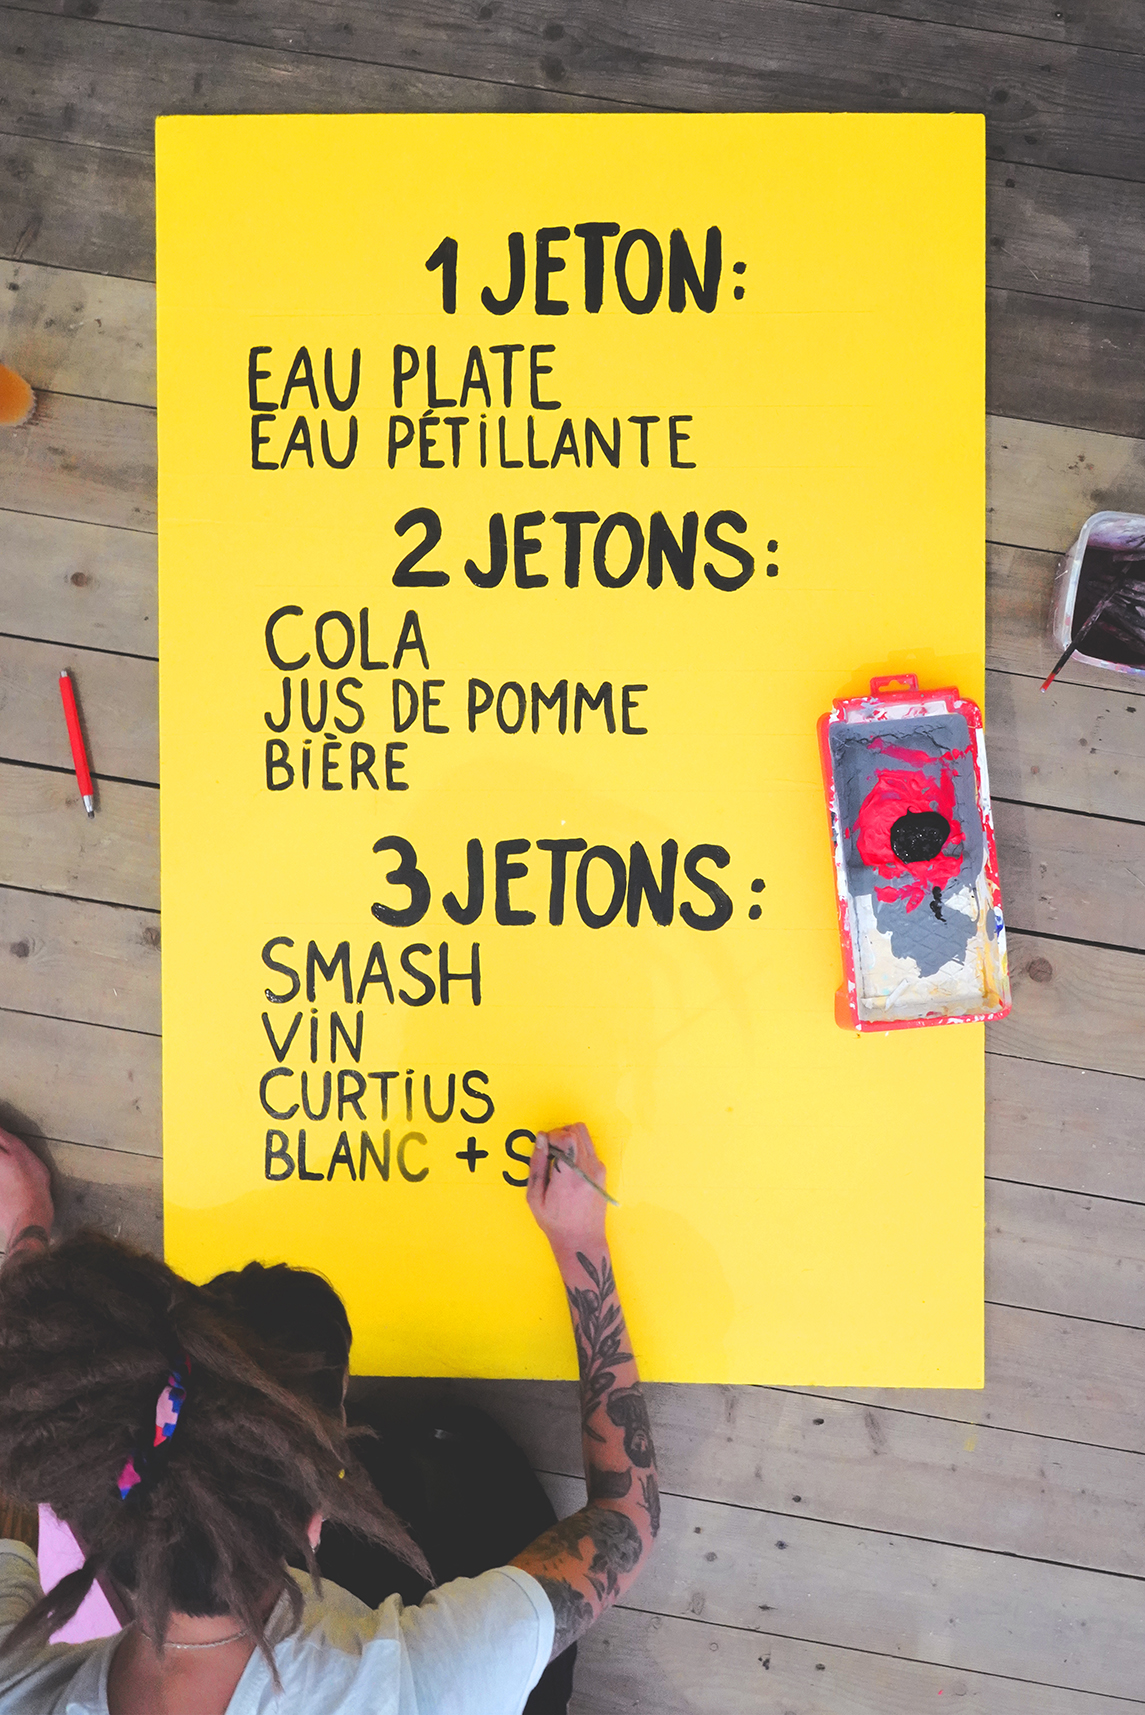 1 JETON:
EAU PLATE
EAU PÉTILLANTE
2 JETONS:
COLA
JUS DE POMME
BIÈRE
3 JETONS:
SMASH
VIN
CURTIUS
BLANC + S